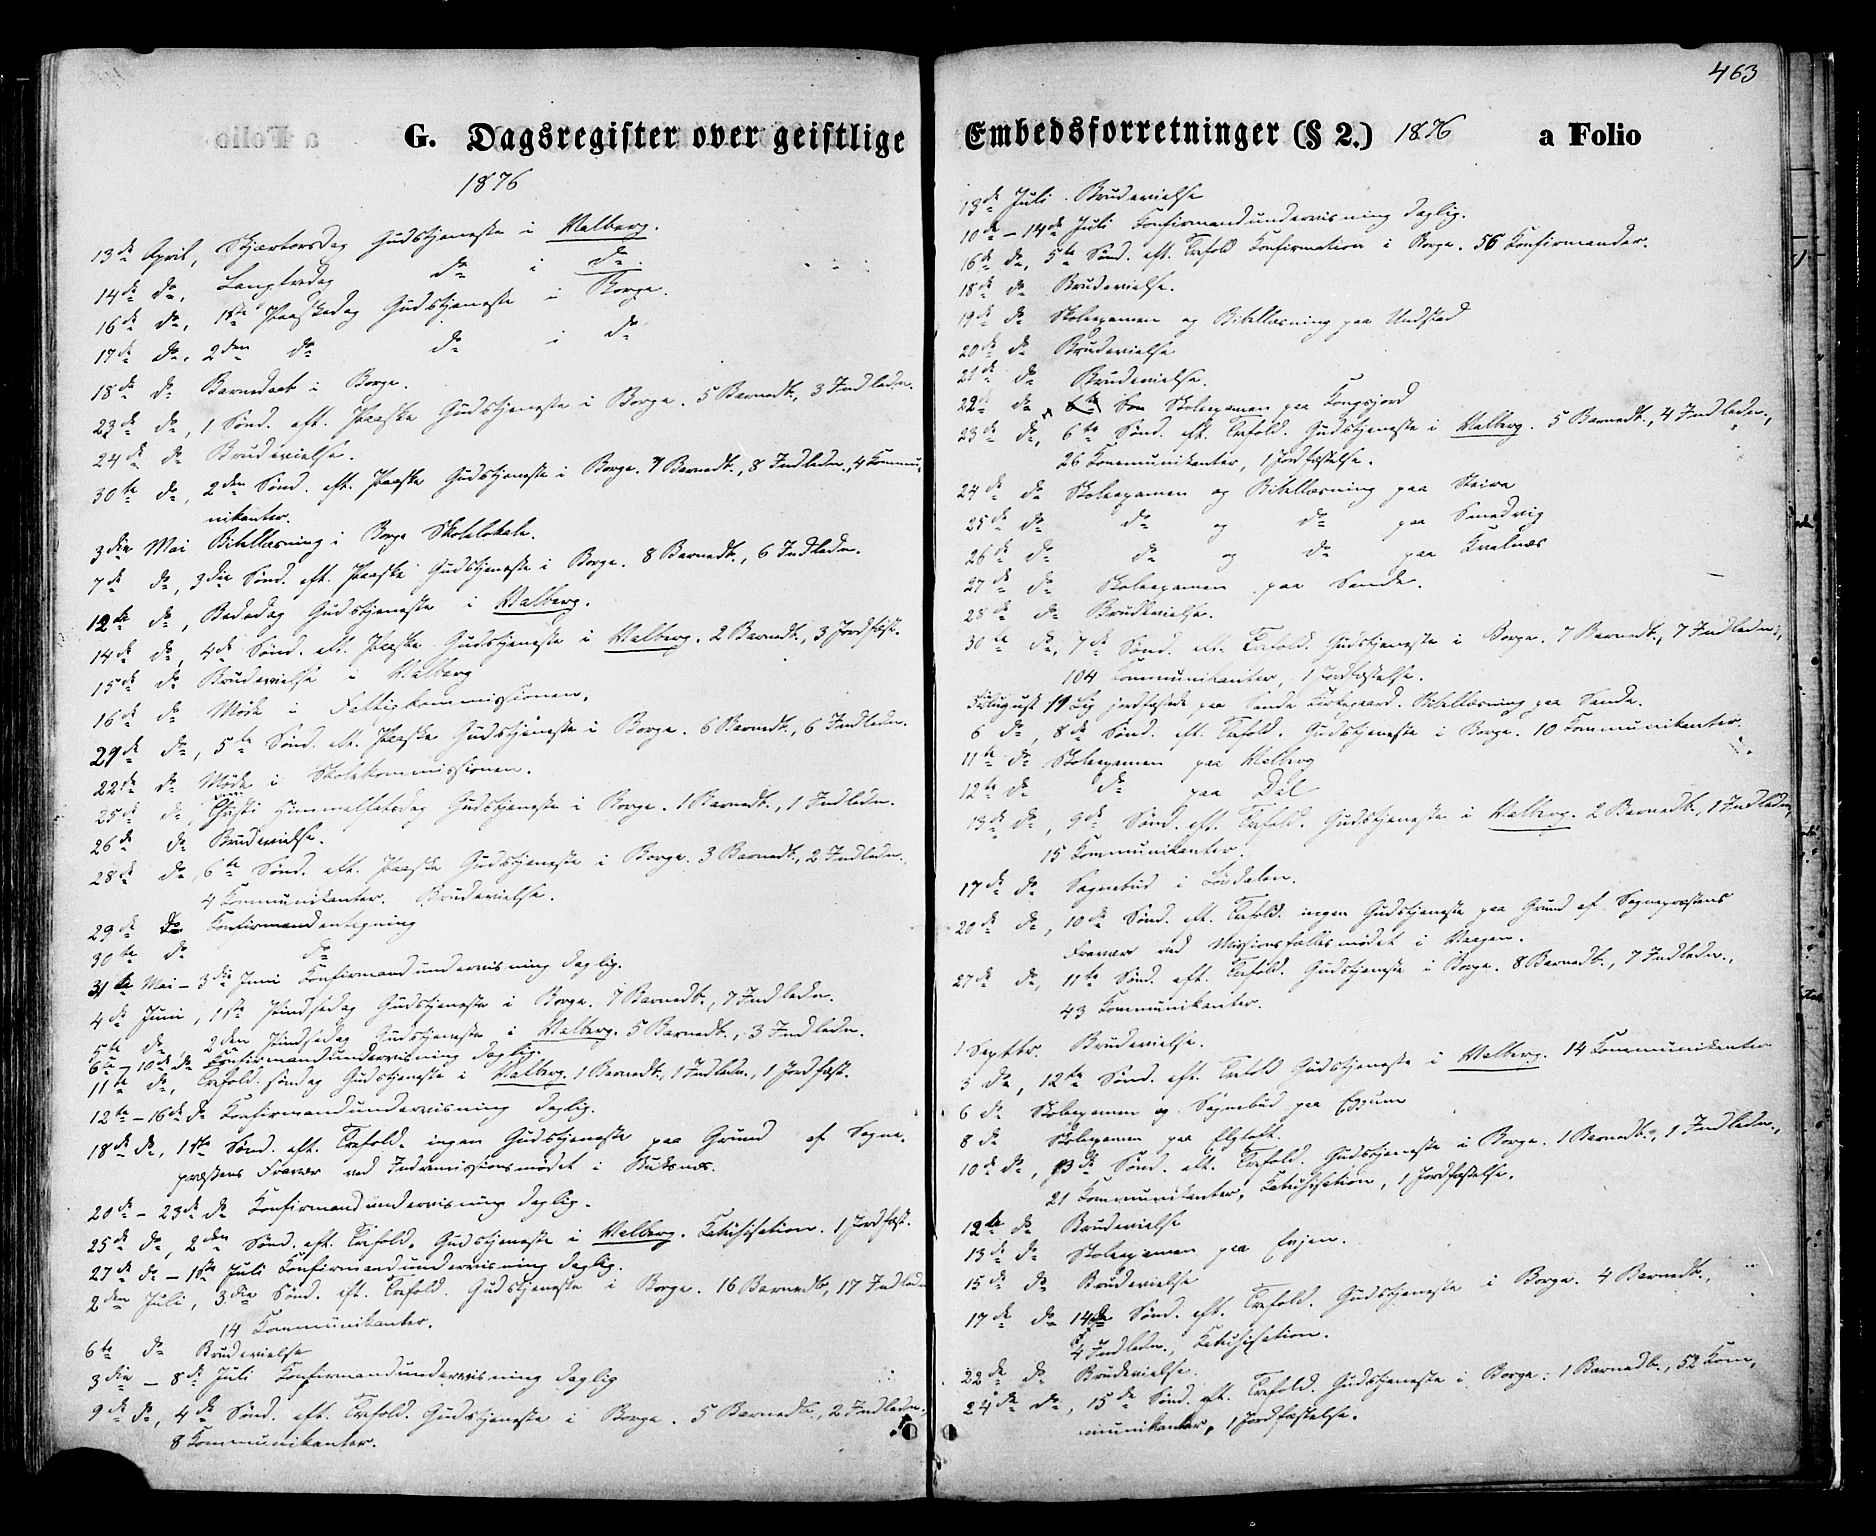 G. Dagsregister over geistlige
1876
13de April, Skjærtorsdag Gudstjeneste i Valberg.
14de do, Langfredag do i do.
16de do, 1ste Paaskedag Gudstjeneste i Borge.
17de do, 2den do do i do
18de do Barnedaab i Borge.
23de do, 1 Sønd. eft. Paaske Gudstjeneste i Borge. 5 Barnedb., 3 Indledn.
24de do Brudevielse.
30te do, 2den Sønd. eft. Paaske Gudstjeneste i Borge. 7 Barnedb., 8 Indledn., 4 Kommu-
nikanter.
3die Mai Bibellæsning i Borge Skolelokale.
7de do, 3die Sønd. eft. Paaske Gudstjeneste i Borge. 8 Barnedb., 6 Indledn.
12te do, Bededag Gudstjeneste i Valberg.
14de do, 4de Sønd. eft. Paaske Gudstjeneste i Valberg. 2 Barnedb., 3 Jordfæst.
15de do Brudevielse i Valberg
16de do Møde i Fattigkommissionen.
21de do, 5te Sønd. eft. Paaske Gudstjeneste i Borge. 6 Barnedb., 6 Indledn.
22de do Møde i Skolekommissionen.
25de do, Christi Himmelfartsdag Gudstjeneste i Borge. 1 Barnedb., 1 Indledn.
26de do Brudevielse.
28de do, 6te Sønd. eft. Paaske Gudstjeneste i Borge. 3 Barnedb., 2 Indledn.
4 Kommunikanter. Brudevielse.
29de do Konfirmandantegning
30te do do
31te Mai – 3die Juni Konfirmandundervisning daglig.
4de Juni, 1ste Pindsedag Gudstjeneste i Borge. 7 Barnedb., 7 Indledn.
5te do, 2den Pindsedag Gudstjeneste i Valberg. 5 Barnedb., 3 Indledn.
6te – 10de do Konfirmandundervisning daglig.
11te do, Trefold. søndag Gudstjeneste i Valberg. 1 Barnedb., 1 Indledn., 1 Jordfæst.
12te – 16de do Konfirmandundervisning daglig.
18de do, 1ste Sønd. eft. Trefold. ingen Gudstjeneste paa Grund af Sogne-
præstens Fravær ved Indremissionsmødet i Buksnæs.
20de – 23de do Konfirmandundervisning daglig.
25de do, 2den Sønd. eft. Trefold. Gudstjeneste i Valberg. Katechisation. 1 Jordfæst.
27de do – 1ste Juli Konfirmandundervisning daglig.
2den Juli, 3die Sønd. eft. Trefold. Gudstjeneste i Borge. 16 Barnedb, 17 Indledn
14 Kommunikanter.
6te do Brudevielse
3die – 8de Juli Konfirmandundervisning daglig
9de do, 4de Sønd. eft. Trefold. Gudstjeneste i Borge. 5 Barnedb., 2 Indledn.
8 Kommunikanter.
463
Embedsforretninger (§ 2.) 1876 a Folio
13de Juli. Brudevielse
10de – 14de Juli Konfirmandundervisning daglig.
16de do, 5te Sønd. eft. Trefold Konfirmation i Borge. 56 Konfirmander.
18de do Brudevielse.
19de do Skoleexamen og Bibellæsning paa Undstad
20de do Brudevielse
21de do Brudevielse.
22de do Skoleexamen paa Kongsjord
23de do, 6te Sønd. eft. Trefold. Gudstjeneste i Valberg. 5 Barnedb., 4 Indledn.,
26 Kommunikanter, 1 Jordfæstelse.
24de do Skoleexamen og Bibellæsning paa Steira
25de do do og do paa Smedvig
26de do do og do paa Kvalnæs
27de do Skoleexamen paa Sande.
28de do Brudevielse.
30te do, 7de Sønd. eft. Trefold. Gudstjeneste i Borge. 7 Barnedb., 7 Indledn.,
104 Kommunikanter, 1 Jordfæstelse.
August Lig jordfæstede paa Sande Kirkegaard. Bibellæsning paa Sande.
6 do, 8de Sønd. eft. Trefold. Gudstjeneste i Borge. 10 Kommunikanter.
11te do Skoleexamen paa Valberg
12te do do paa Dal
13de do, 9de Sønd. eft. Trefold. Gudstjeneste i Valberg. 2 Barnedb., 1 Indledn,
15 Kommunikanter.
17de do Sognebud i Løvdalen.
20de do, 10de Sønd. eft. Trefold. ingen Gudstjeneste paa Grund af Sognepræstens
Fravær ved Missionsfællesmødet i Vaagen.
27de do, 11te Sønd. eft. Trefold. Gudstjeneste i Borge. 8 Barnedb., 7 Indledn.,
43 Kommunikanter.
1 Septbr. Brudevielse.
3 do, 12te Sønd. eft. Trefold Gudstjeneste i Valberg. 14 Kommunikanter
6 do Skoleexamen og Sognebud paa Eggum
8 do Skoleexamen paa
10de do, 13de Sønd. eft. Trefold. Gudstjeneste i Borge. 1 Barnedb., 1 Indledn.,
21 Kommunikanter, Katechisation, 1 Jordfæstelse.
12te do Brudevielse
13de do Skoleexamen paa Evjen.
15de do Brudevielse
17de do 14de Sønd. eft. Trefold. Gudstjeneste i Borge. 4 Barnedb.,
4 Indledn., Katechisation.
22de do Brudevielse.
24de do, 15de Sønd. eft. Trefold. Gudstjeneste i Borge. 1 Barnedb., 52 Kom-
munikanter, 1 Jordfæstelse.